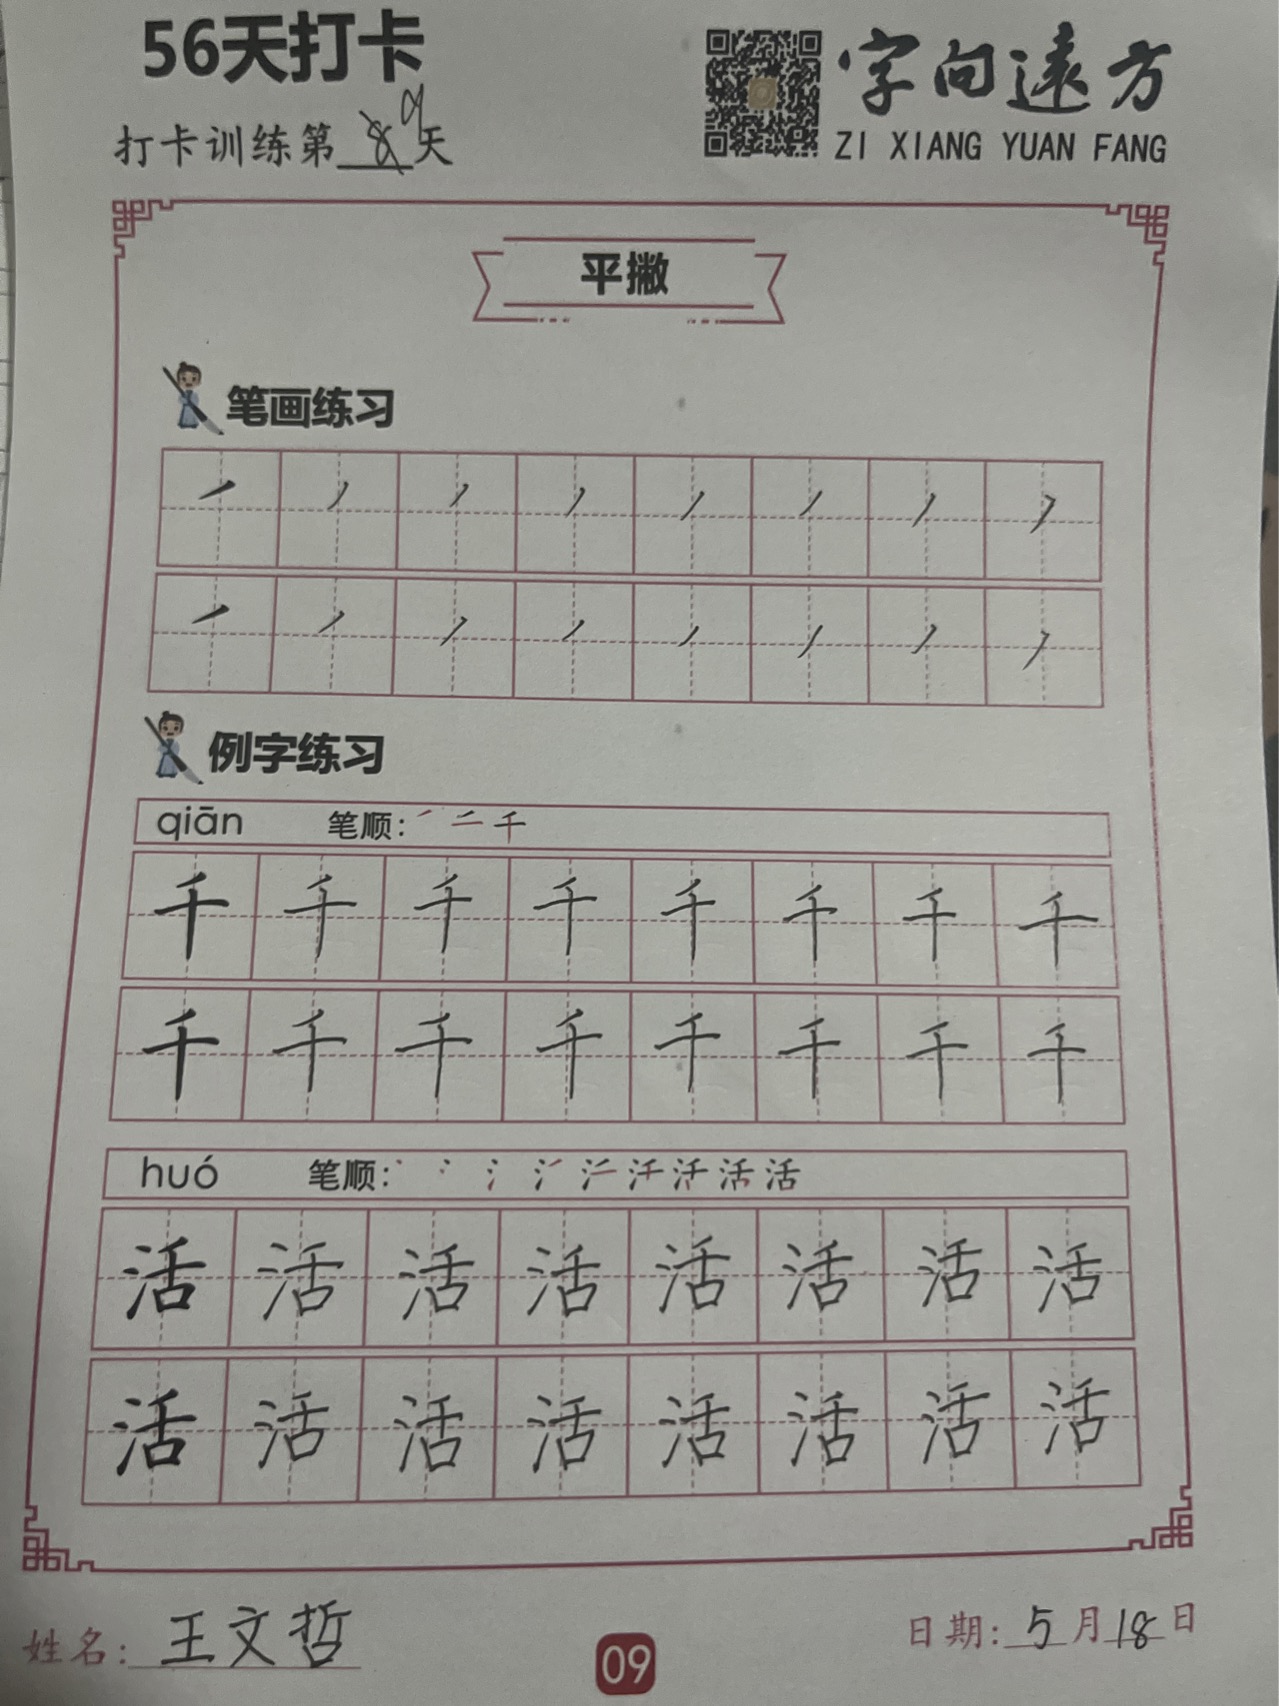 56天打卡
字向远方
打卡训练第9天
ZI XIANG YUAN FANG
平撇
笔画练习
例字练习
qiān 笔顺:
千 千 千 千 千 千 千 千
千 千 千 千 千 千 千 千
huó 笔顺:
活 活 活 活 活 活 活 活
活 活 活 活 活 活 活 活
姓名: 王文哲
日期: 5月18日
09